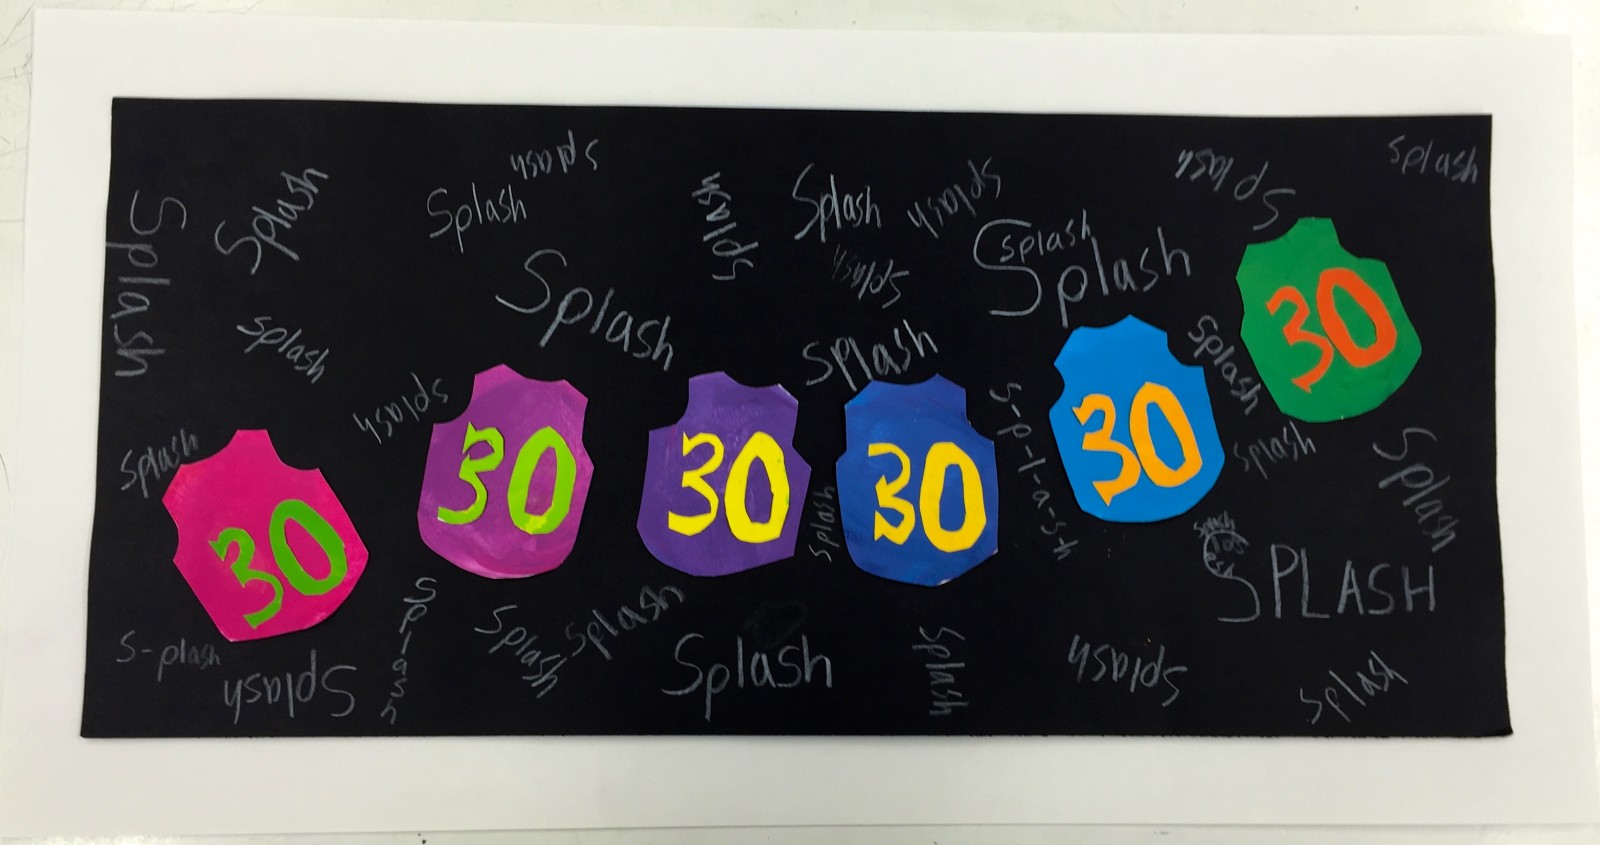 splash
splash
Splash
splash
Splash
Splash
splash
splash
Splash
Splash
splash
splash
Splash
splash
Splash
30
Splash
Splash
splash
splash
30
30
30
30
30
Splash
splash
Splash
S-p-l-a-s-h
splash
splash
SPLASH
Splash
splash
Splash
S-plash
Splash
Splash
Splash
Splash
splash